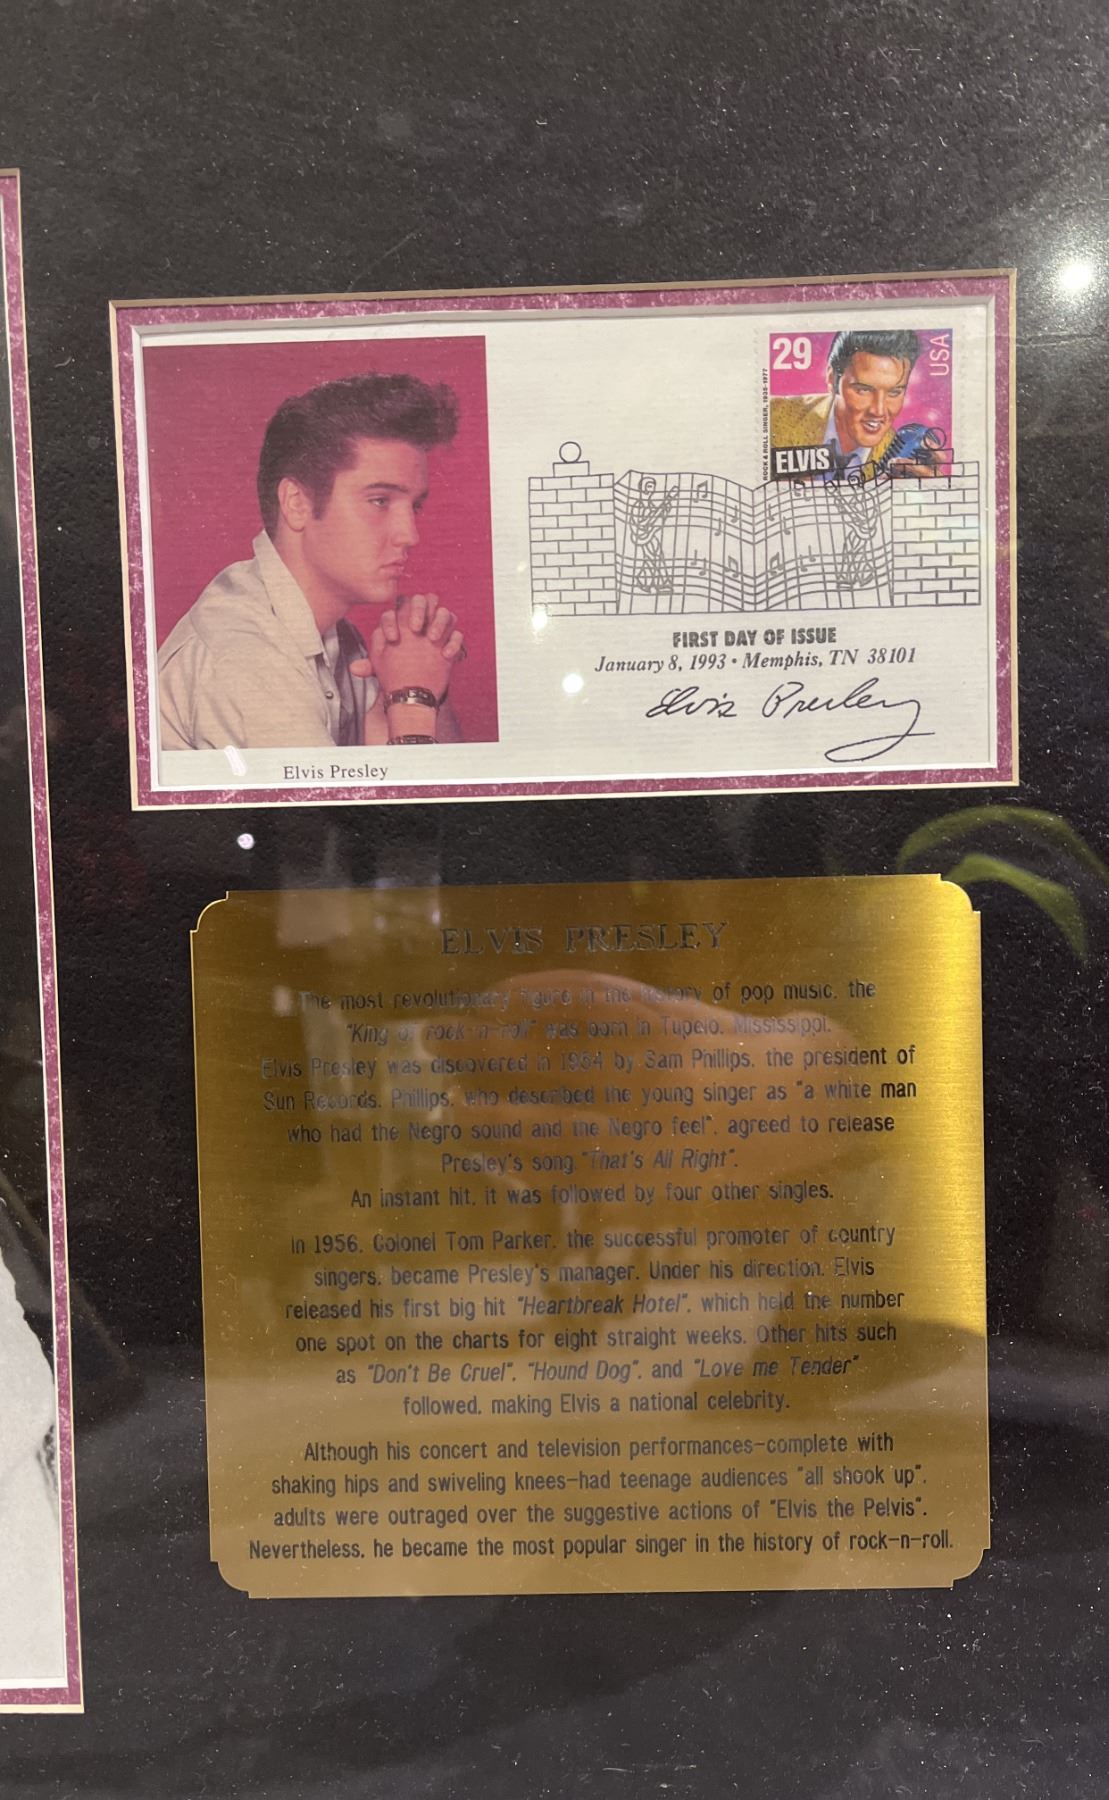 29
USA
ROCK & ROLL SINGER, 1935-1977
ELVIS
FIRST DAY OF ISSUE
January 8, 1993 • Memphis, TN 38101
Elvis Presley
Elvis Presley
ELVIS PRESLEY
The most revolutionary figure in the history of pop music, the
"King of rock-n-roll" was born in Tupelo, Mississippi.
Elvis Presley was discovered in 1954 by Sam Phillips, the president of
Sun Records. Phillips, who described the young singer as "a white man
who had the Negro sound and the Negro feel", agreed to release
Presley's song "That's All Right".
An instant hit, it was followed by four other singles.
In 1956, Colonel Tom Parker, the successful promoter of country
singers, became Presley's manager. Under his direction, Elvis
released his first big hit "Heartbreak Hotel", which held the number
one spot on the charts for eight straight weeks. Other hits such
as "Don't Be Cruel", "Hound Dog", and "Love me Tender"
followed, making Elvis a national celebrity.
Although his concert and television performances-complete with
shaking hips and swiveling knees-had teenage audiences "all shook up",
adults were outraged over the suggestive actions of "Elvis the Pelvis".
Nevertheless, he became the most popular singer in the history of rock-n-roll.